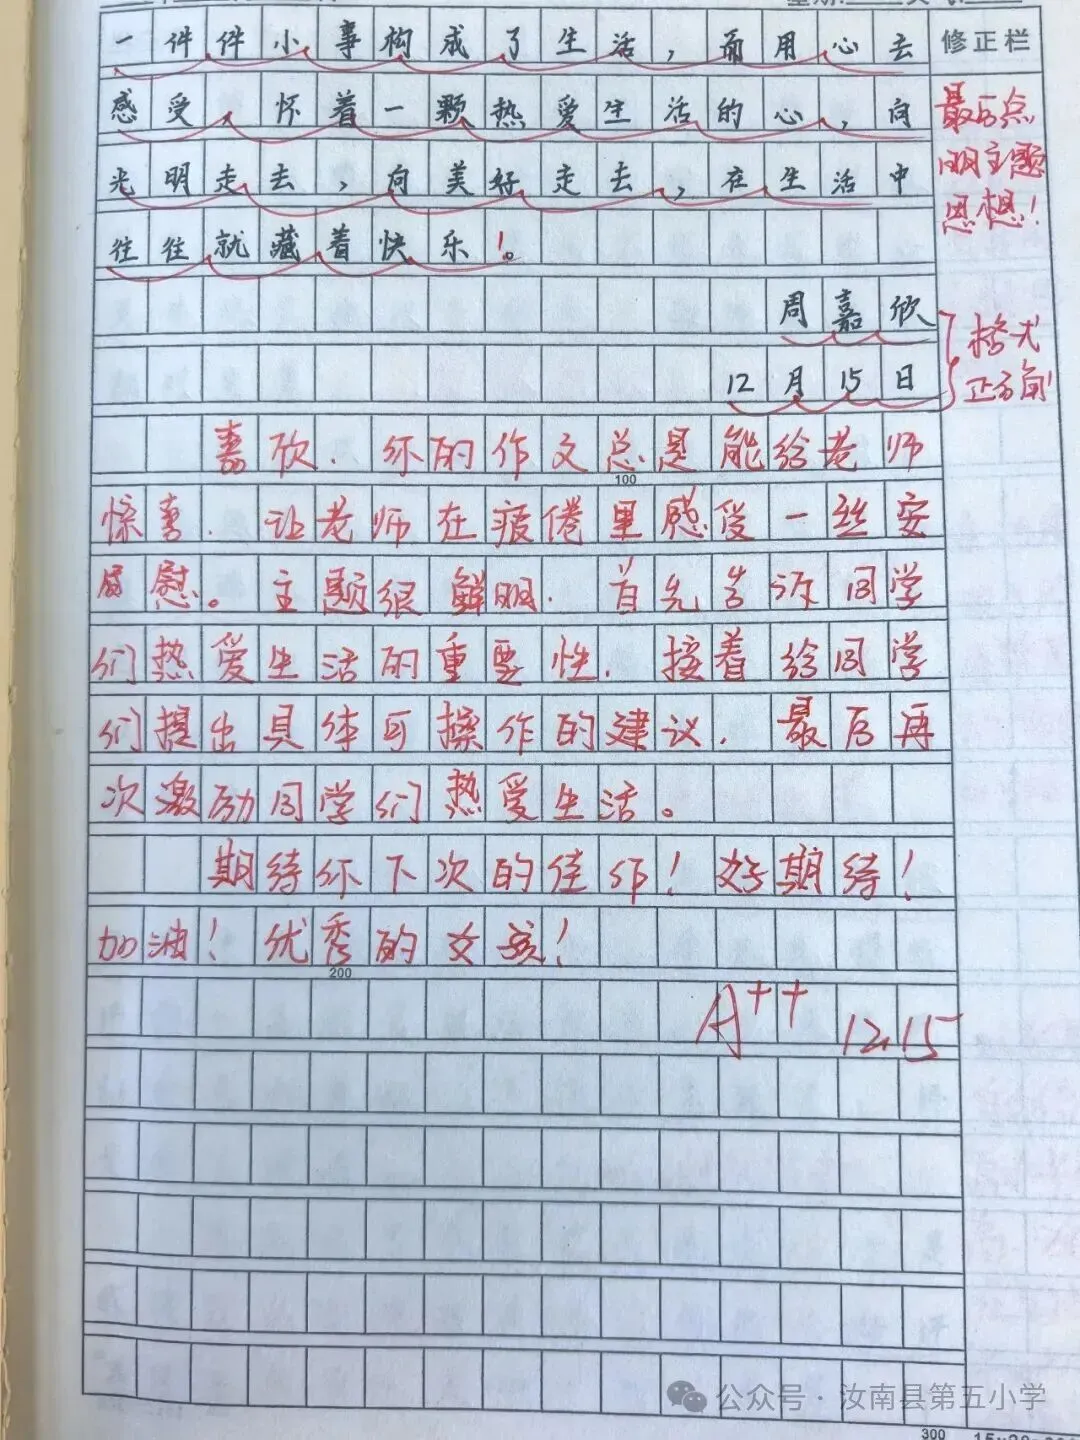 一件件小事构成了生活，而用心去
修正栏
感受，怀着一颗热爱生活的心，向
光明走去，向美好走去，在生活中
往往就藏着快乐！。
最后点
明主题
思想！
周嘉欣
12月15日
格式
正确
嘉欣．你的作文总是能给老师
100
惊喜．让老师在疲倦里感受一丝安
慰。主题很鲜明．首先告诉同学
们热爱生活的重要性．接着给同学
们提出具体可操作的建议．最后再
次激励同学们热爱生活。
期待你下次的佳作！好期待！
加油！优秀的女孩！
200
A++ 12.15
公众号·汝南县第五小学
300